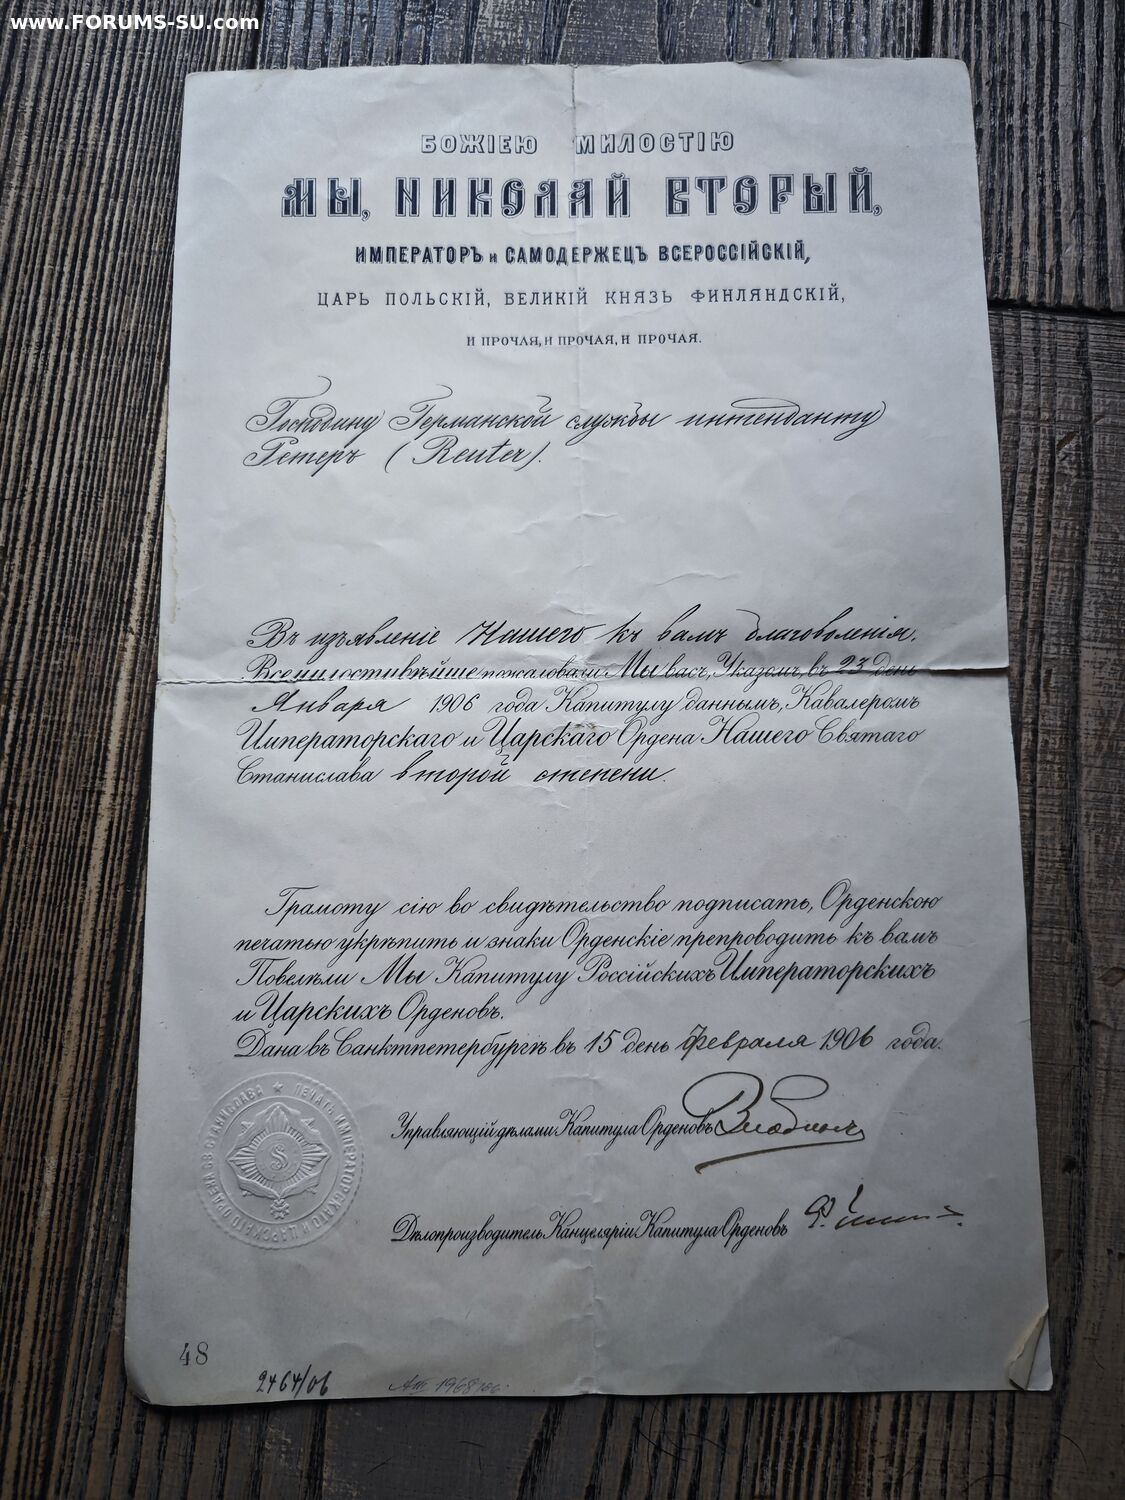 www.FORUMS-SU.com
БОЖІЕЮ МИЛОСТІЮ
МЫ, НИКОЛАЙ ВТОРЫЙ,
ИМПЕРАТОРЪ и САМОДЕРЖЕЦЪ ВСЕРОССІЙСКІЙ,
ЦАРЬ ПОЛЬСКІЙ, ВЕЛИКІЙ КНЯЗЬ ФИНЛЯНДСКІЙ,
И ПРОЧАЯ, И ПРОЧАЯ, И ПРОЧАЯ.
Господину Германской службы интенданту
Ретеръ (Reuter).
Въ изъявленіе Нашего къ вамъ благоволенія,
Всемилостивѣйше пожаловали Мы васъ, Указомъ, въ 23 день
Января 1906 года Капитулу даннымъ, Кавалеромъ
Императорскаго и Царскаго Ордена Нашего Святаго
Станислава второй степени.
Грамоту сію во свидѣтельство подписать, Орденскою
печатью укрѣпить и знаки Орденскіе препроводить къ вамъ
Повелѣли Мы Капитулу Россійскихъ Императорскихъ
и Царскихъ Орденовъ.
Дана въ Санктпетербургѣ въ 15 день февраля 1906 года.
Управляющій дѣлами Капитула Орденовъ
Дѣлопроизводитель Канцеляріи Капитула Орденовъ
ПЕЧАТЬ ИМПЕРАТОРСКАГО И ЦАРСКАГО ОРДЕНА СВ СТАНИСЛАВА
S
48
2464/06